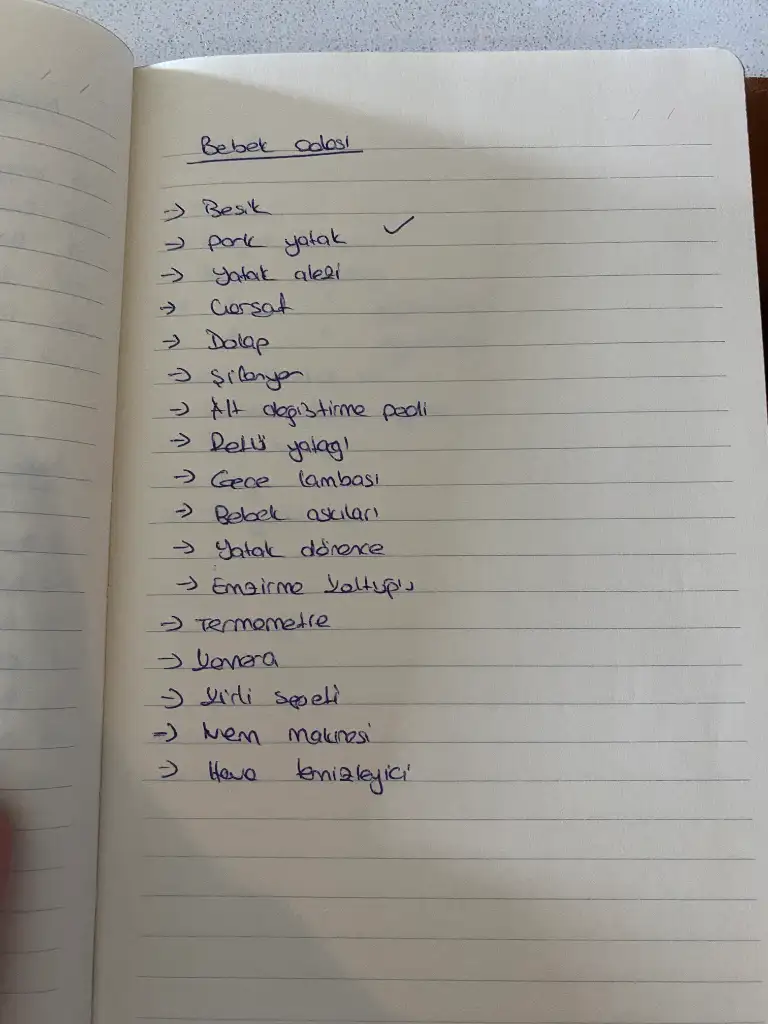 Bebek odası
→ Beşik
→ park yatak ✓
→ yatak alezi
→ Çarşaf
→ Dolap
→ Şifonyer
→ Alt değiştirme pedi
→ Reflü yatağı
→ Gece lambası
→ Bebek askıları
→ Yatak dönence
→ Emzirme koltuğu
→ Termometre
→ kamera
→ kirli sepeti
→ Nem makinesi
→ Hava temizleyici